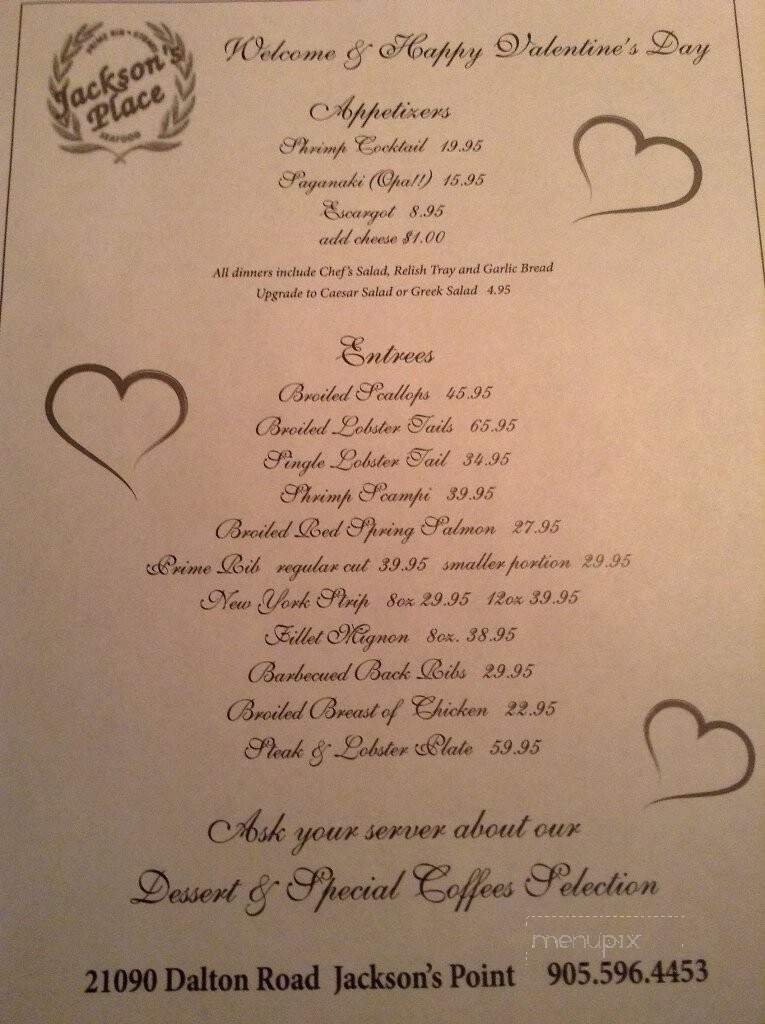 PRIME RIB • STEAKS
Jackson's
Place
SEAFOOD
Welcome & Happy Valentine's Day
Appetizers
Shrimp Cocktail 19.95
Saganaki (Opa!!) 15.95
Escargot 8.95
add cheese $1.00
All dinners include Chef's Salad, Relish Tray and Garlic Bread
Upgrade to Caesar Salad or Greek Salad 4.95
Entrees
Broiled Scallops 45.95
Broiled Lobster Tails 65.95
Single Lobster Tail 34.95
Shrimp Scampi 39.95
Broiled Red Spring Salmon 27.95
Prime Rib regular cut 39.95 smaller portion 29.95
New York Strip 8oz 29.95 12oz 39.95
Fillet Mignon 8oz. 38.95
Barbecued Back Ribs 29.95
Broiled Breast of Chicken 22.95
Steak & Lobster Plate 59.95
Ask your server about our
Dessert & Special Coffees Selection
menupix
21090 Dalton Road Jackson's Point 905.596.4453